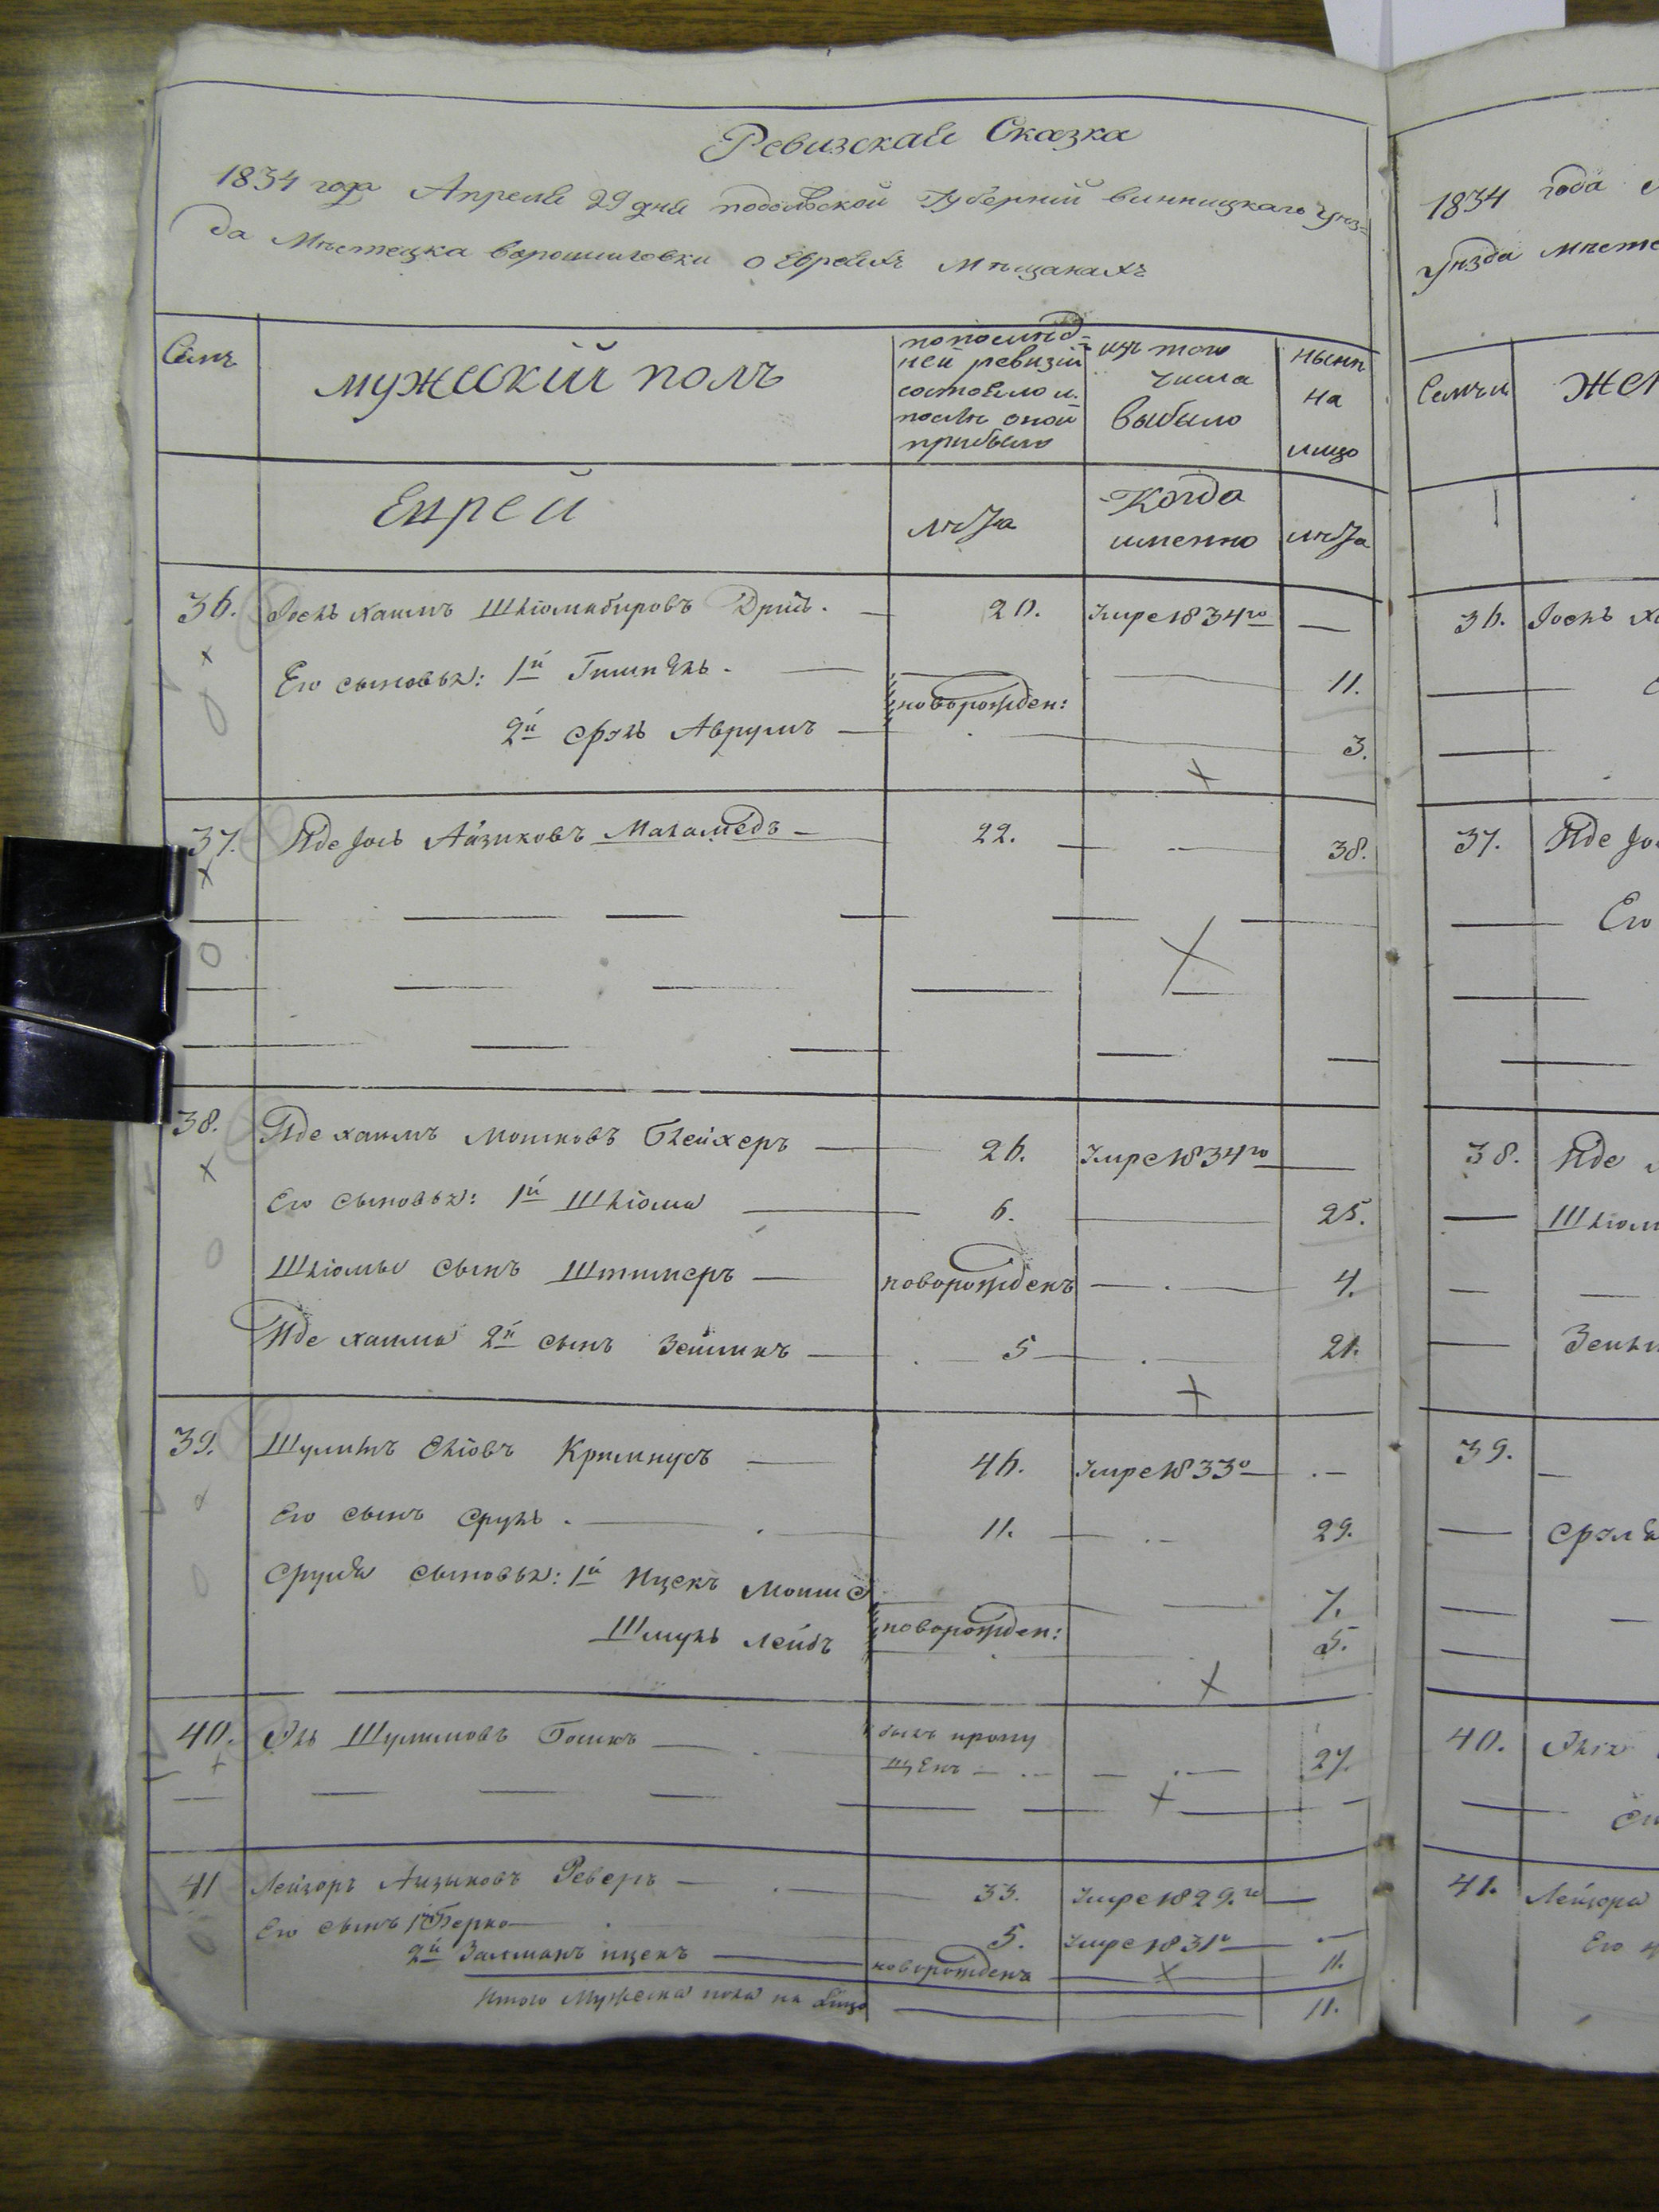 Ревизская Сказка
1834 года Апреля 29 дня подольской Губернiи винницкаго уѣз-
да Мѣстечка ворошиловки о Евреяхъ Мѣщанахъ
Семъ
мужескiй полъ
по послѣд-
ней ревизiи
состояло и
послѣ оной
прибыло
изъ того
числа
выбыло
нынѣ
на
лицо
Еврей
лѣта
Когда
именно
лѣта
36. Iосль хаимъ Шлiомабировъ — 20. Умре 1834го —
Его сыновья: 1й — 11.
новорожден:
2й срэль Аврумъ — 3.
37. Иде Iоль Айзиковъ Маламедъ — 22. — 38.
38. Иде хаимъ Мошковъ Блейхеръ — 26. Умре 1834го —
Его сыновья: 1й Шлiома — 6. — 25.
Шлiомы сынъ — новорожденъ — 4.
Иде хаима 2й сынъ Зейликъ — 5 — 21.
39. Шулимъ Элiовъ — 46. Умре 1833о —
Его сынъ Сруль — 11. — 29.
Сруля сыновья: 1й Ицекъ Мошко — 7.
новорожден:
Шмуль Лейбъ 5.
40. Эль Шулимовъ — былъ пропу
щенъ — 27.
41 Лейзоръ Айзыковъ — 33. Умре 1829.го —
Его сынъ 1й Берко — 5. Умре 1831о —
2й Залманъ ицекъ — новорожденъ — 11.
Итого Мужеска пола на Лицо — 11.
1834 года
уѣзда мѣсте
Семьи
Же
36. Iосль ха
37. Иде Iо
Его
38. Иде
Шлiом
39. —
Срэля
40.
41. Лейзора
Его